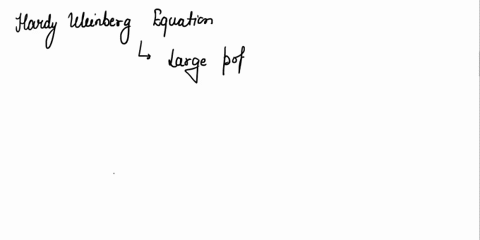 Hardy Weinberg Equation
↳ Large pop